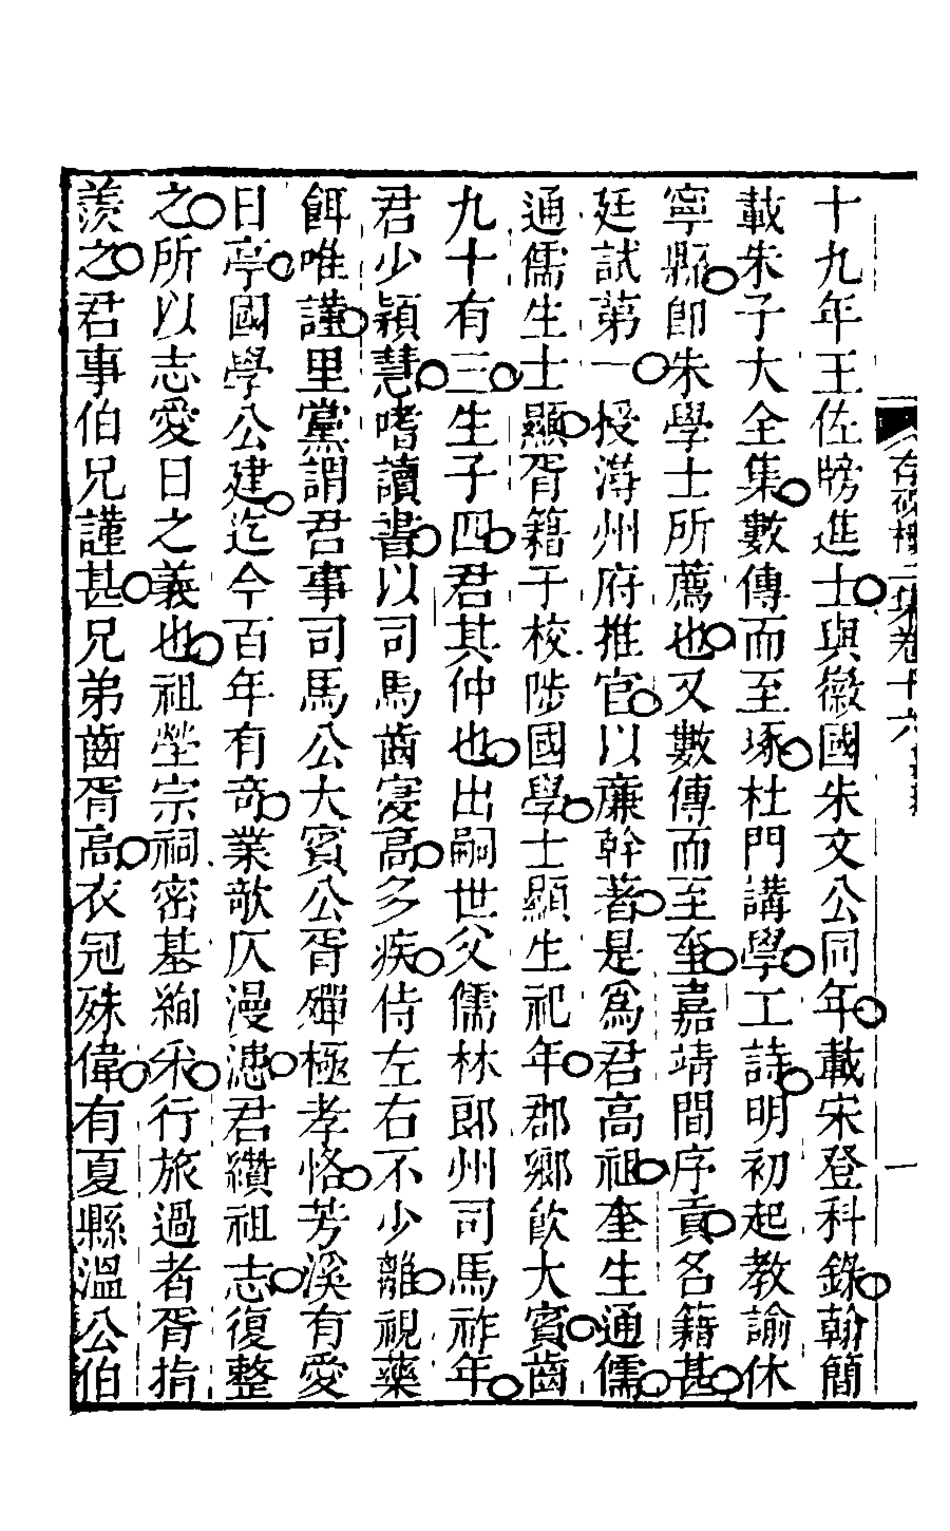 十九年王佐牓進士與徽國朱文公同年載宋登科錄翰簡
載朱子大全集數傳而至琢杜門講學工詩明初起教諭休
寧縣卽朱學士所薦也又數傳而至奎嘉靖間序貢名籍甚
廷試第一授潯州府推官以廉幹著是爲君高祖奎生通儒
通儒生士顯胥籍于校陟國學士顯生祀年郡鄉飲大賓齒
九十有三生子四君其仲也出嗣世父儒林郎州司馬祚年
君少穎慧嗜讀書以司馬齒寖高多疾侍左右不少離視藥
餌唯謹里黨謂君事司馬公大賓公胥殫極孝恪芳溪有愛
日亭國學公建迄今百年有奇業欹仄漫漶君纘祖志復整
之所以志愛日之義也祖塋宗祠密基絢采行旅過者胥指
羨之君事伯兄謹甚兄弟齒胥高衣冠殊偉有夏縣溫公伯
存硯樓二集卷十六
一